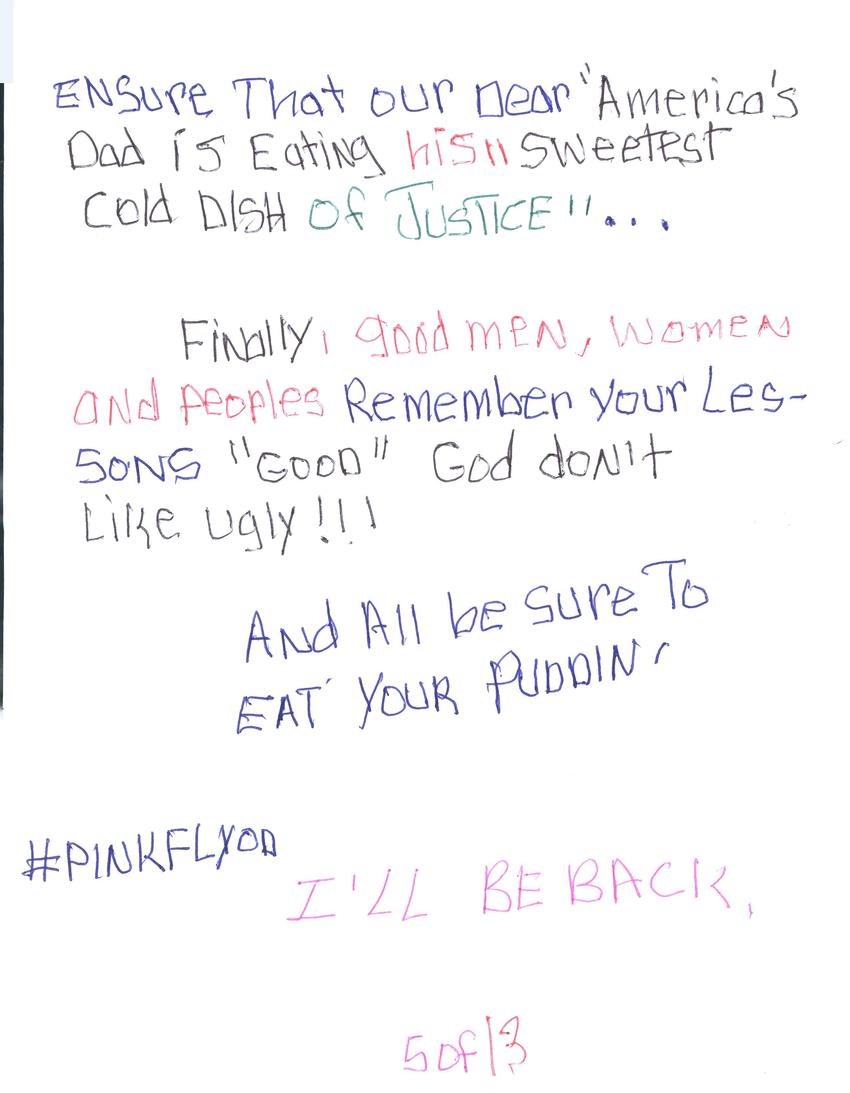 ENSure That our Dear "America's
Dad is Eating his" sweetest
Cold DISH Of JUSTICE"...
Finally, good men, women
and peoples Remember your Les-
sons "GOOD" God don't
Like ugly!!!
And All be sure To
EAT YOUR PUDDIN'
#PINKFLYOD
I'LL BE BACK,
5 of 13